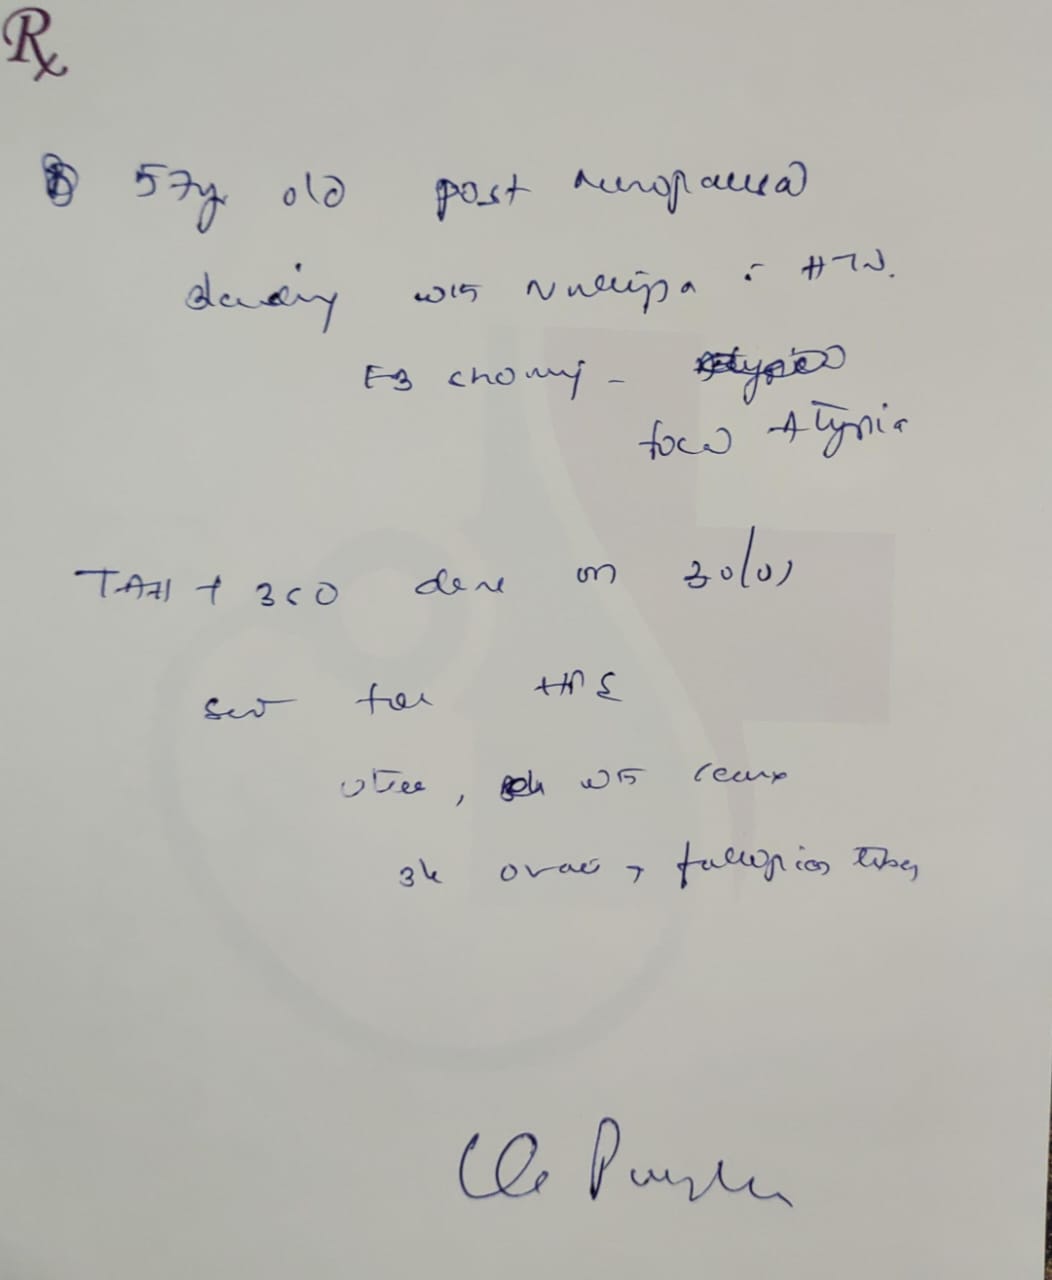 Rx
57y old post menopausal
bleeding with Nullipa c HTN.
EB showing -
focal Atypia
TAH + BSO done on 30/01
sent for HPE
uterus, with cervix
ovaries, fallopian tubes